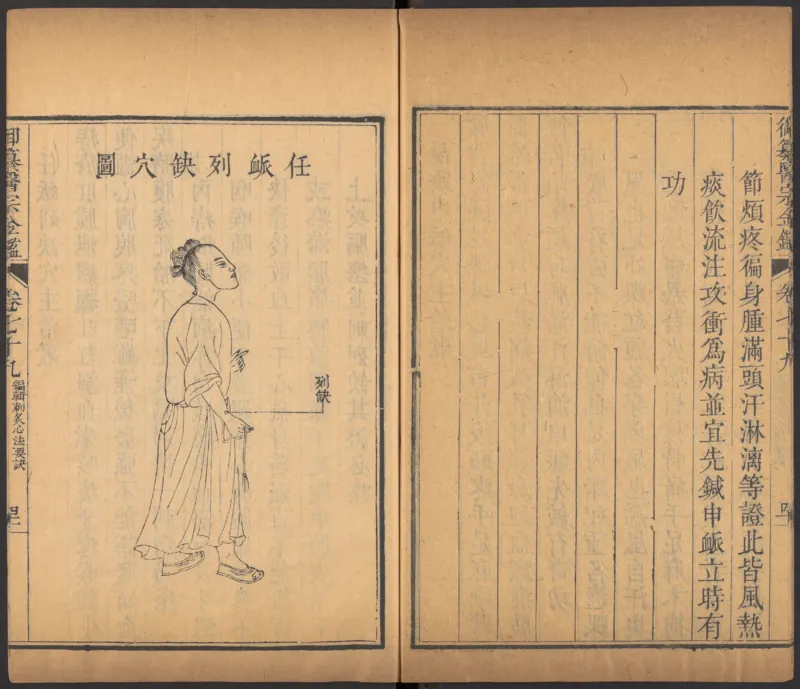 御纂醫宗金鑑
卷七十九
節煩疼徧身腫滿頭汗淋漓等證此皆風熱
痰飲流注攻衝為病並宜先鍼申䘑立時有
功
任䘑列缺穴圖
列缺
御纂醫宗金鑑
卷七十九
編輯刺灸心法要訣